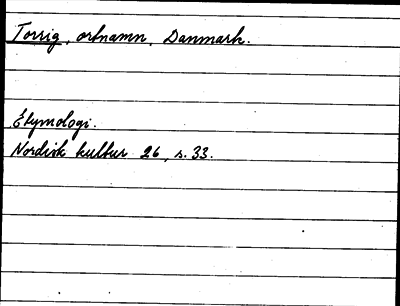 Torrig, ortnamn, Danmark.
Etymologi.
Nordisk kultur 26, s. 33.